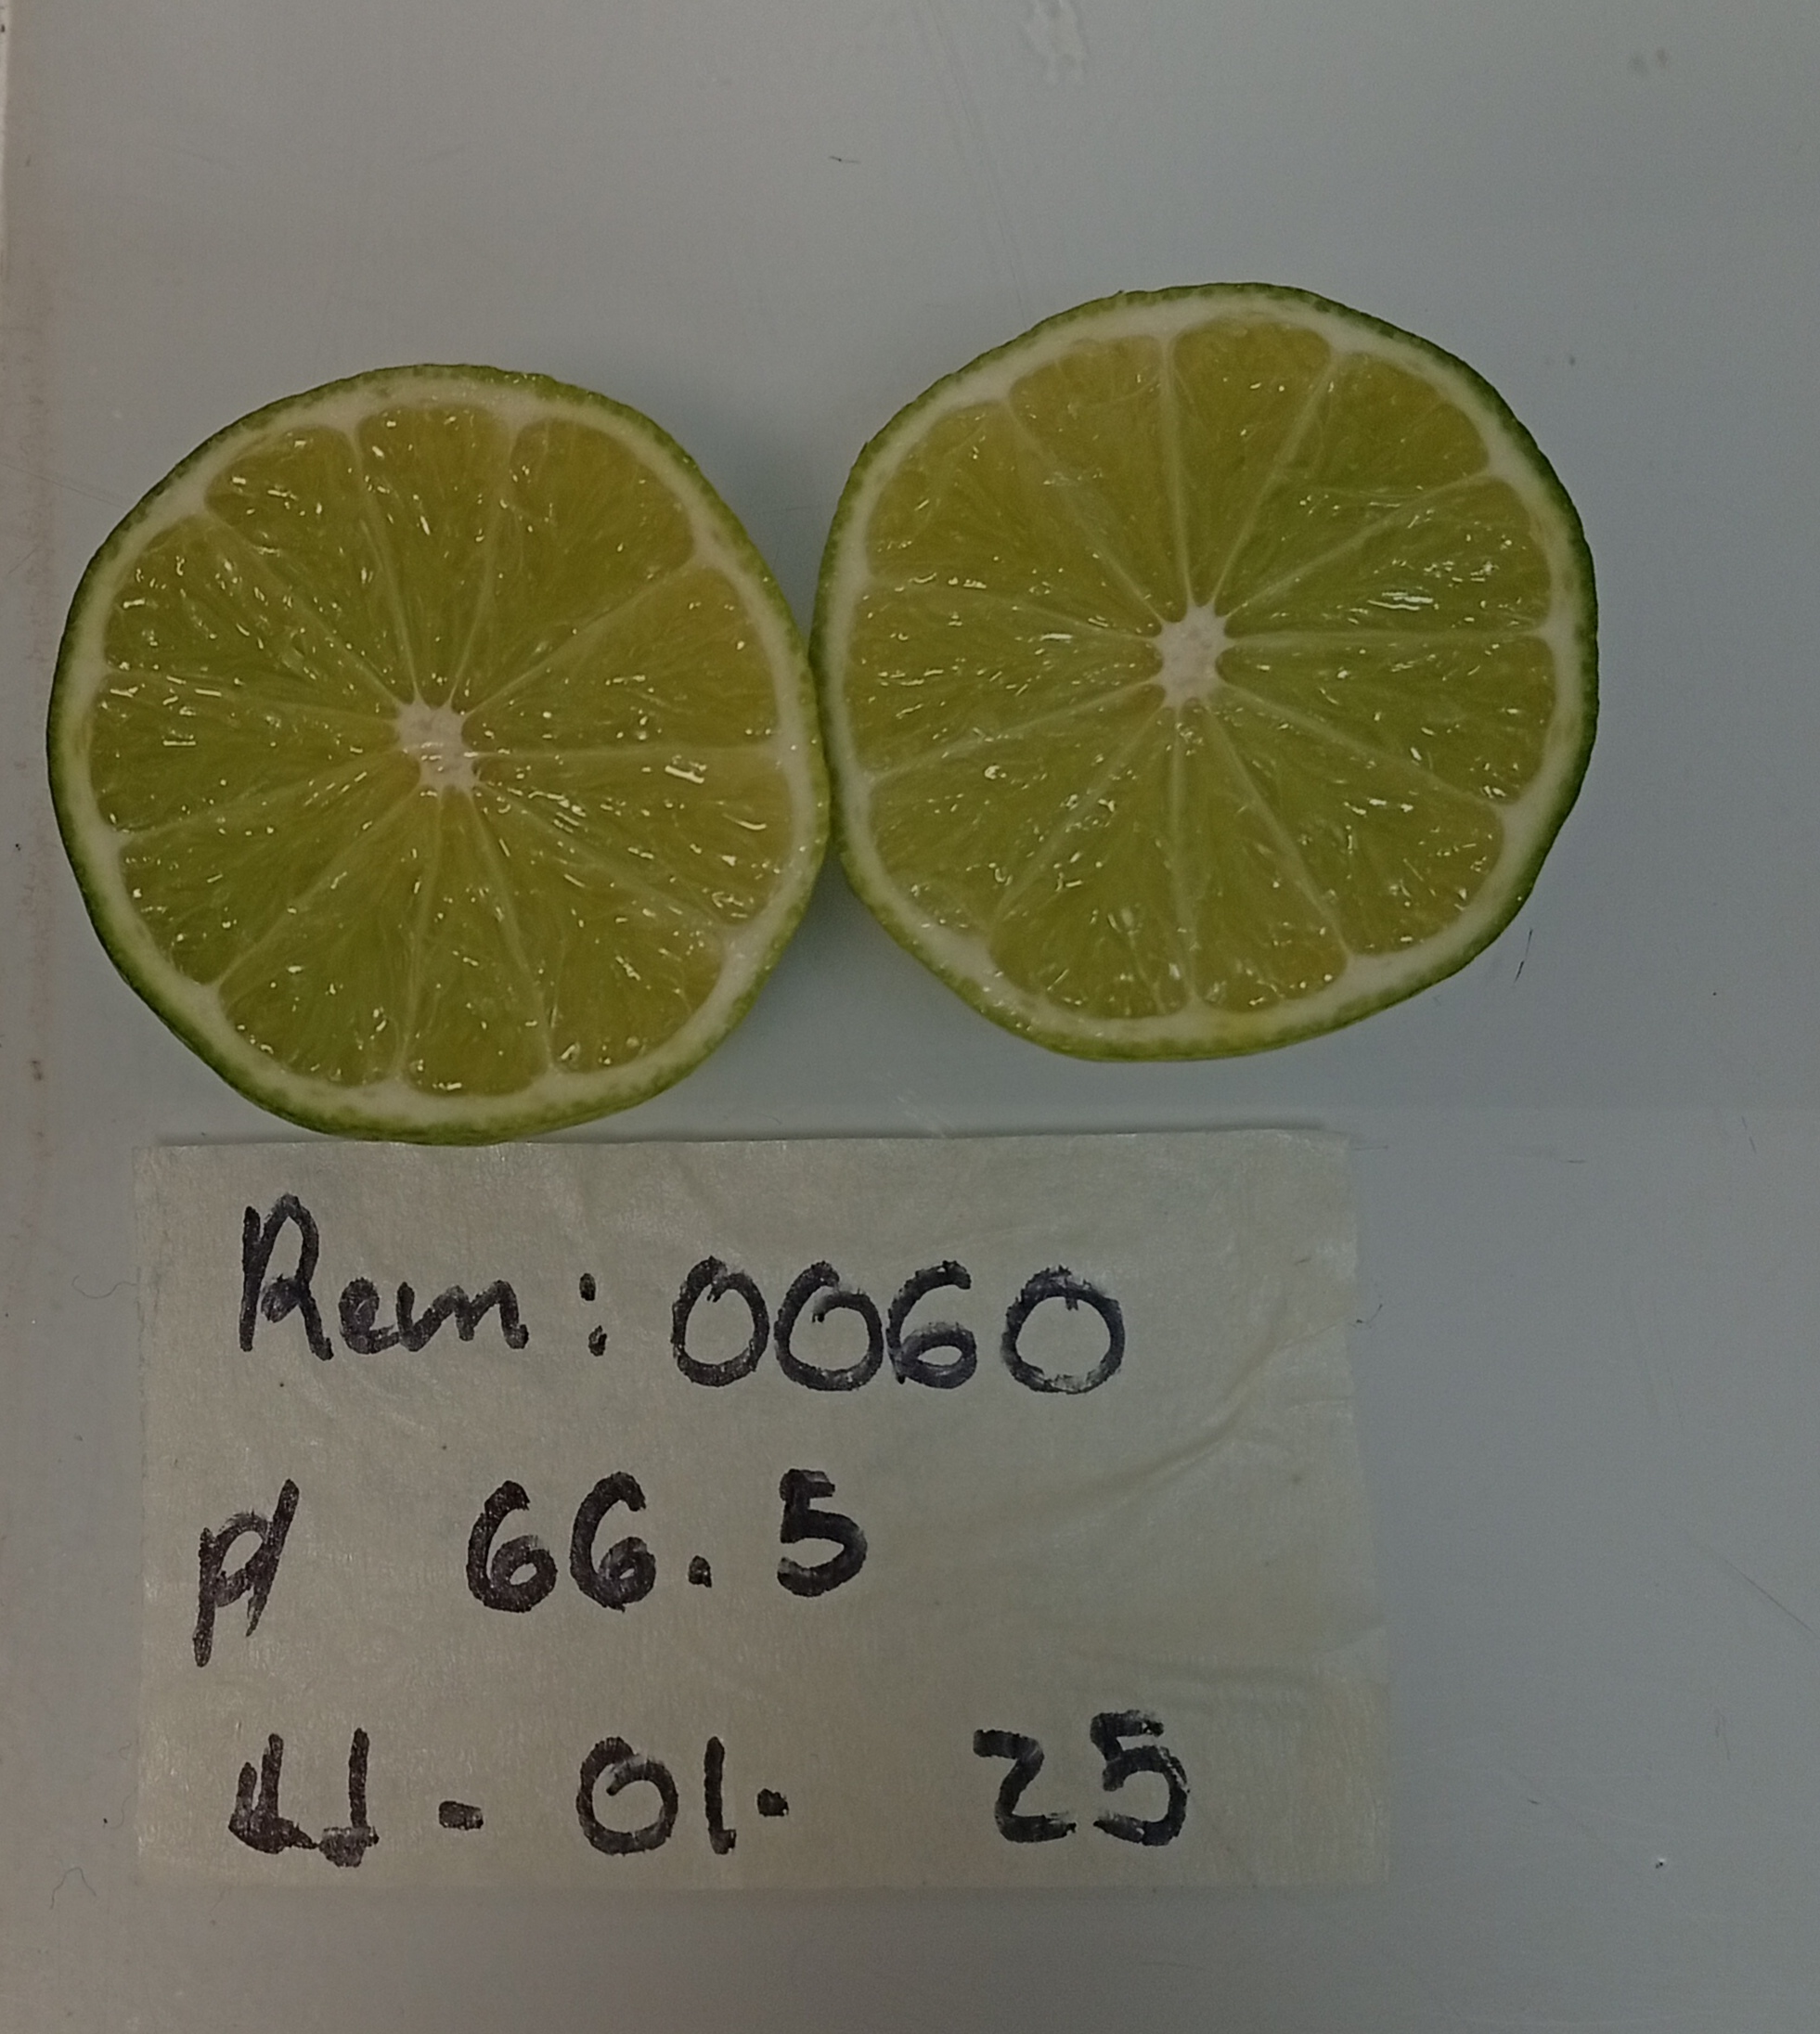 Rem: 0060
ø 66.5
11-01. 25